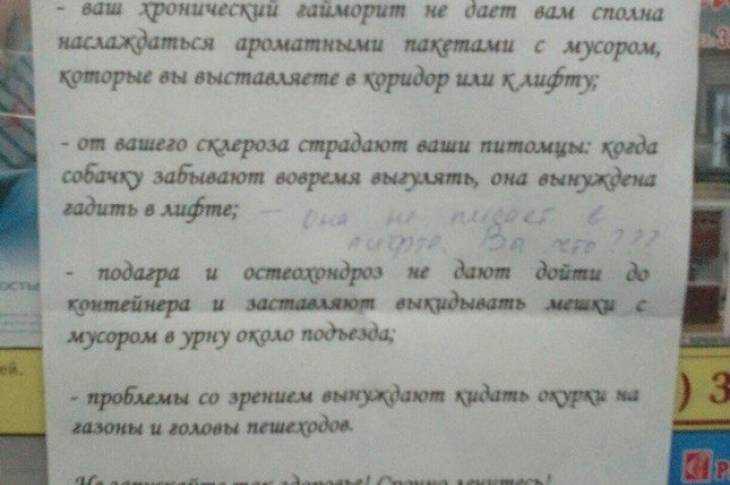 - ваш хронический гайморит не дает вам сполна
наслаждаться ароматными пакетами с мусором,
которые вы выставляете в коридор или к лифту;
- от вашего склероза страдают ваши питомцы: когда
собачку забывают вовремя выгулять, она вынуждена
гадить в лифте;
— она не писает в
лифте. Вы что???
- подагра и остеохондроз не дают дойти до
контейнера и заставляют выкидывать мешки с
мусором в урну около подъезда;
- проблемы со зрением вынуждают кидать окурки на
газоны и головы пешеходов.
Не запускайте так здоровье! Срочно лечитесь!